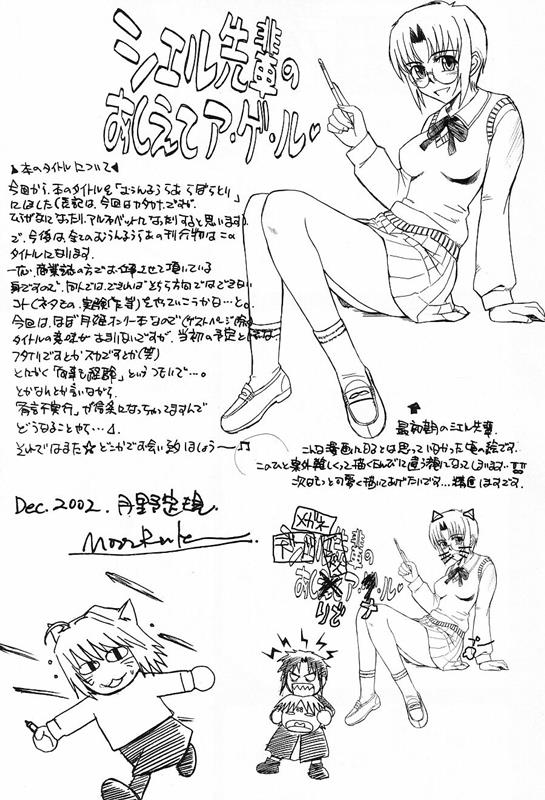 シエル先輩の
おしえてア・ゲ・ル♡
本のタイトルについて
今回から、本のタイトルを「むうんるうらあ
にしました(表記は、今回はカタカナ、ですが、
ひらがなになったり、アルファベットになったりすると思います)
で、今後は、全てのむうんるうらあの刊行物はこの
タイトルになります。
一応、商業誌の方でお仕事させて頂いている
身ですので、同人では、できれば どちら方向ではできない
コト(ネタとか、実験
今回は、ほぼ月姫オンリー本なので(ゲストページ除く)
タイトルの意味が あまりないですが、当初の予定とは
フタナリですとかスカですとか(笑)
とにかく「何事も経験」というコトで…。
とかなんとか言いながら、
「有言不実行」が得意になっちゃってますんで
どうなることやて…
それではまた☆どこかでお会いしましょう〜♫
Dec. 2002. 月野定規.
最初期のシエル先輩.
こんな漫画になるとは思っていなかった頃の絵です。
このひと案外難しくって描くたんびに違う顔になってしまいます…!!
次はもっと可愛く描いてあげたいです…精進するです。
メガネ
の
ア・ル
りで